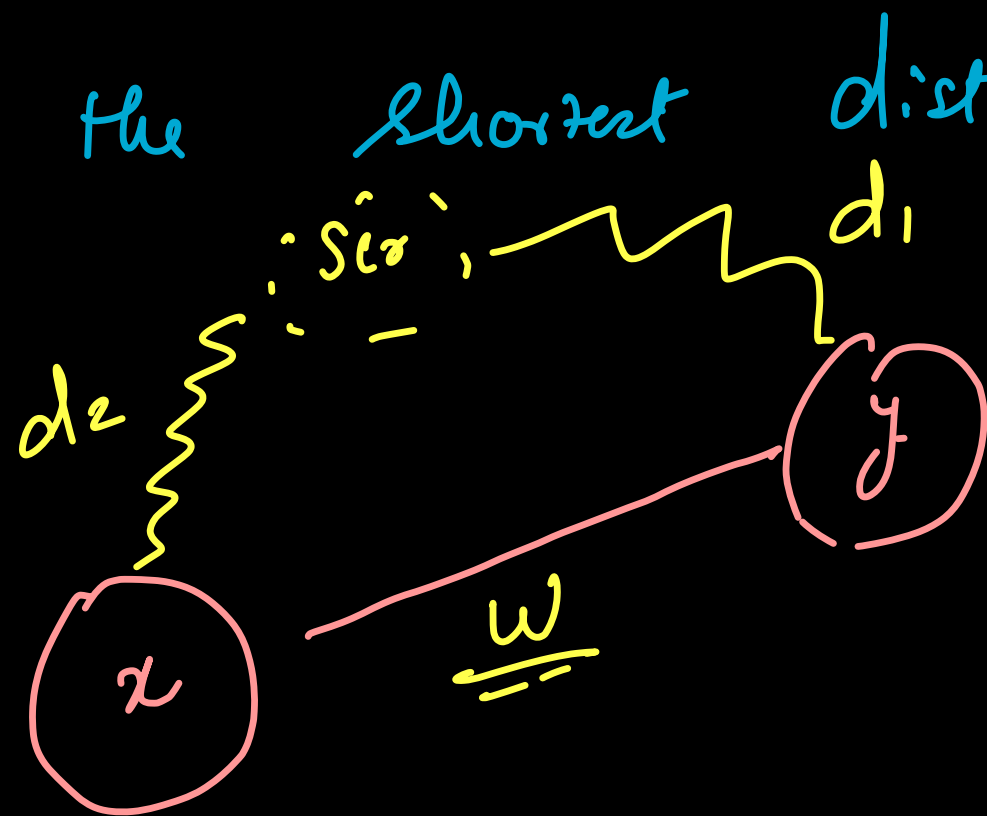 the shortest dist
d1
d2
y
w
x